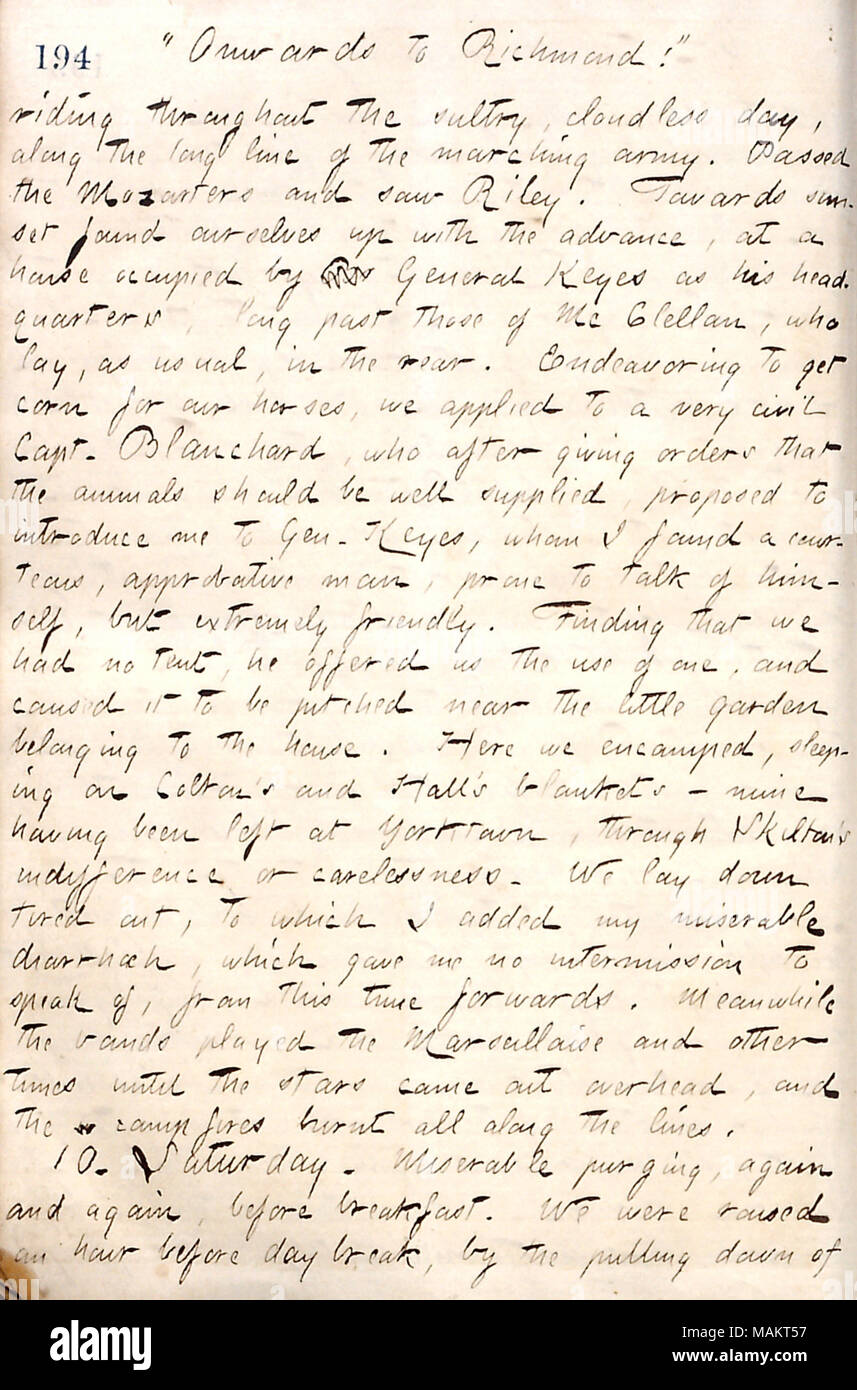 194 "Onwards to Richmond!"
riding throughout the sultry, cloudless day,
along the long line of the marching army. Passed
the Mozarters and saw Riley. Towards sun-
set found ourselves up with the advance, at a
house occupied by General Keyes as his head-
quarters, long past those of Mc Clellan, who
lay, as usual, in the rear. Endeavoring to get
corn for our horses, we applied to a very civil
Capt. Blanchard, who after giving orders that
the animals should be well supplied, proposed to
introduce me to Gen. Keyes, whom I found a cour-
teous, approbative man, prone to talk of him-
self, but extremely friendly. Finding that we
had no tent, he offered us the use of one, and
caused it to be pitched near the little garden
belonging to the house. Here we encamped, sleep-
ing on Colton's and Hall's blankets - mine
having been left at Yorktown, through Skilton's
indifference or carelessness. We lay down
tired out, to which I added my miserable
diarrhœh, which gave me no intermission to
speak of, from this time forwards. Meanwhile
the bands played the Marseillaise and other
tunes until the stars came out overhead, and
the camp fires burnt all along the lines.
10. Saturday. Miserable purging, again
and again, before breakfast. We were roused
an hour before daybreak, by the pulling down of
alamy
Image ID: MAKT57
www.alamy.com